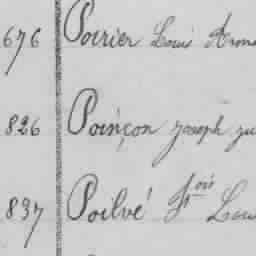 676 Poirier Louis
826 Poinçon Joseph
837 Poilvé